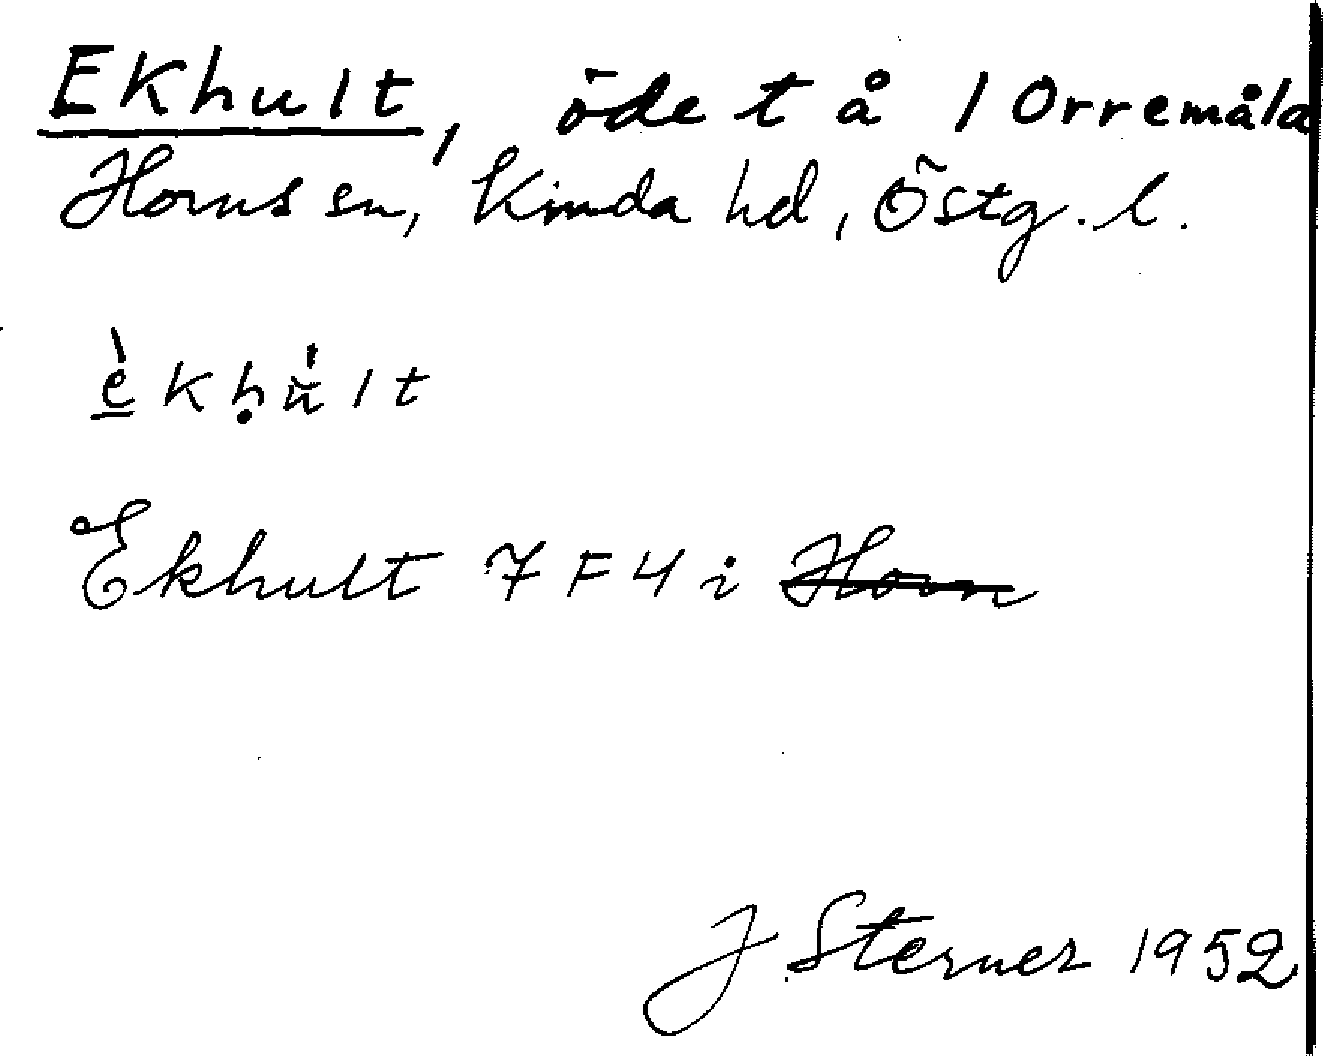 Ekhult, öde t å 1 Orremåla
Horns sn, Kinda hd, Östg. l.
è̲kḥu̇̆lt
Ekhult 7 F 4 i ~~Horn~~
J. Sterner 1952